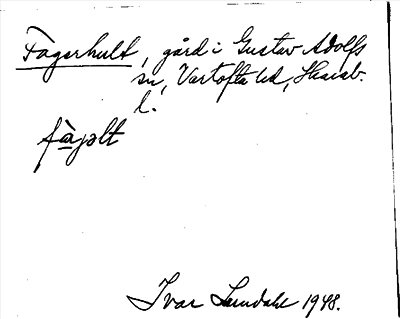 Fagerhult, gård i Gustav Adolfs
sn, Vartofta hd, Skarab.
l.
fàjølt
Ivar Lundahl 1948.